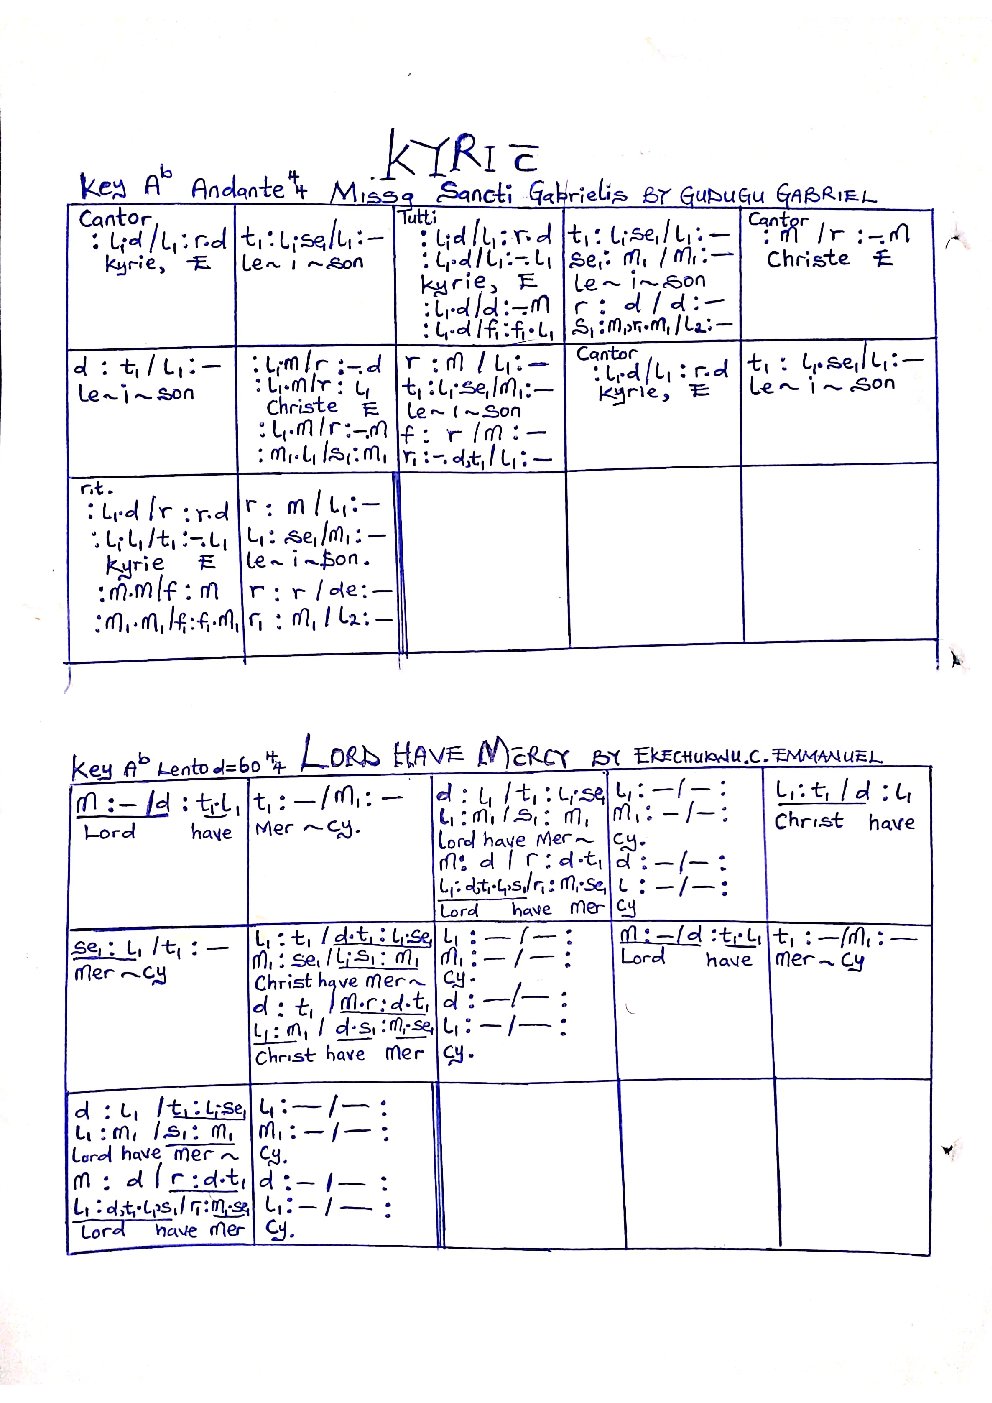 KYRIE
Key Ab Andante 4/4 Missa Sancti Gabrielis BY GUDUGU GABRIEL
Cantor
: L₁.d / L₁ : r.d
Kyrie, E
t₁ : L₁.se₁ / L₁ : —
Le ~ i ~ son
Tutti
: L₁.d / L₁ : r.d
: L₁.d / L₁ : -. L₁
Kyrie, E
: L₁.d / d : -. m
: L₁.d / f₁ : f₁. L₁
t₁ : L₁.se₁ / L₁ : —
se₁ : m₁ / m₁ : —
Le ~ i ~ son
r : d / d : —
s₁ : m₁,r₁.m₁ / L₂ : —
Cantor
: m / r : -. m
Christe E
d : t₁ / L₁ : —
Le ~ i ~ son
: L₁.m / r : -. d
: L₁.m / r : L₁
Christe E
: L₁.m / r : -. m
: m₁.L₁ / s₁ : m₁
r : m / L₁ : —
t₁ : L₁.se₁ / m₁ : —
Le ~ i ~ son
f : r / m : —
r₁ : -. d,t₁ / L₁ : —
Cantor
: L₁.d / L₁ : r.d
Kyrie, E
t₁ : L₁.se₁ / L₁ : —
Le ~ i ~ son
r.t.
: L₁.d / r : r.d
: L₁.L₁ / t₁ : -. L₁
Kyrie E
: m.m / f : m
: m₁.m₁ / f₁ : f₁.m₁
r : m / L₁ : —
L₁ : se₁ / m₁ : —
Le ~ i ~ son.
r : r / de : —
r₁ : m₁ / L₂ : —
Key Ab Lento d=60 4/4 LORD HAVE MERCY BY EKECHUKWU.C.EMMANUEL
m : — / d : t₁.L₁
Lord have
t₁ : — / m₁ : —
Mer ~ cy.
d : L₁ / t₁ : L₁.se₁
L₁ : m₁ / s₁ : m₁
Lord have Mer ~
m : d / r : d.t₁
L₁ : d,t₁.L₁,s₁ / r₁ : m₁.se₁
Lord have mer
L₁ : — / — :
m₁ : — / — :
cy.
d : — / — :
L : — / — :
cy
L₁ : t₁ / d : L₁
Christ have
se₁ : L₁ / t₁ : —
mer ~ cy
L₁ : t₁ / d.t₁ : L₁.se₁
m₁ : se₁ / L₁.s₁ : m₁
Christ have mer ~
d : t₁ / m.r : d.t₁
L₁ : m₁ / d.s₁ : m₁.se₁
Christ have mer
L₁ : — / — :
m₁ : — / — :
cy.
d : — / — :
L₁ : — / — :
cy.
m : — / d : t₁.L₁
Lord have
t₁ : — / m₁ : —
mer ~ cy
d : L₁ / t₁ : L₁.se₁
L₁ : m₁ / s₁ : m₁
Lord have mer ~
m : d / r : d.t₁
L₁ : d,t₁.L₁,s₁ / r₁ : m₁.se₁
Lord have mer
L₁ : — / — :
m₁ : — / — :
cy.
d : — / — :
L₁ : — / — :
cy.